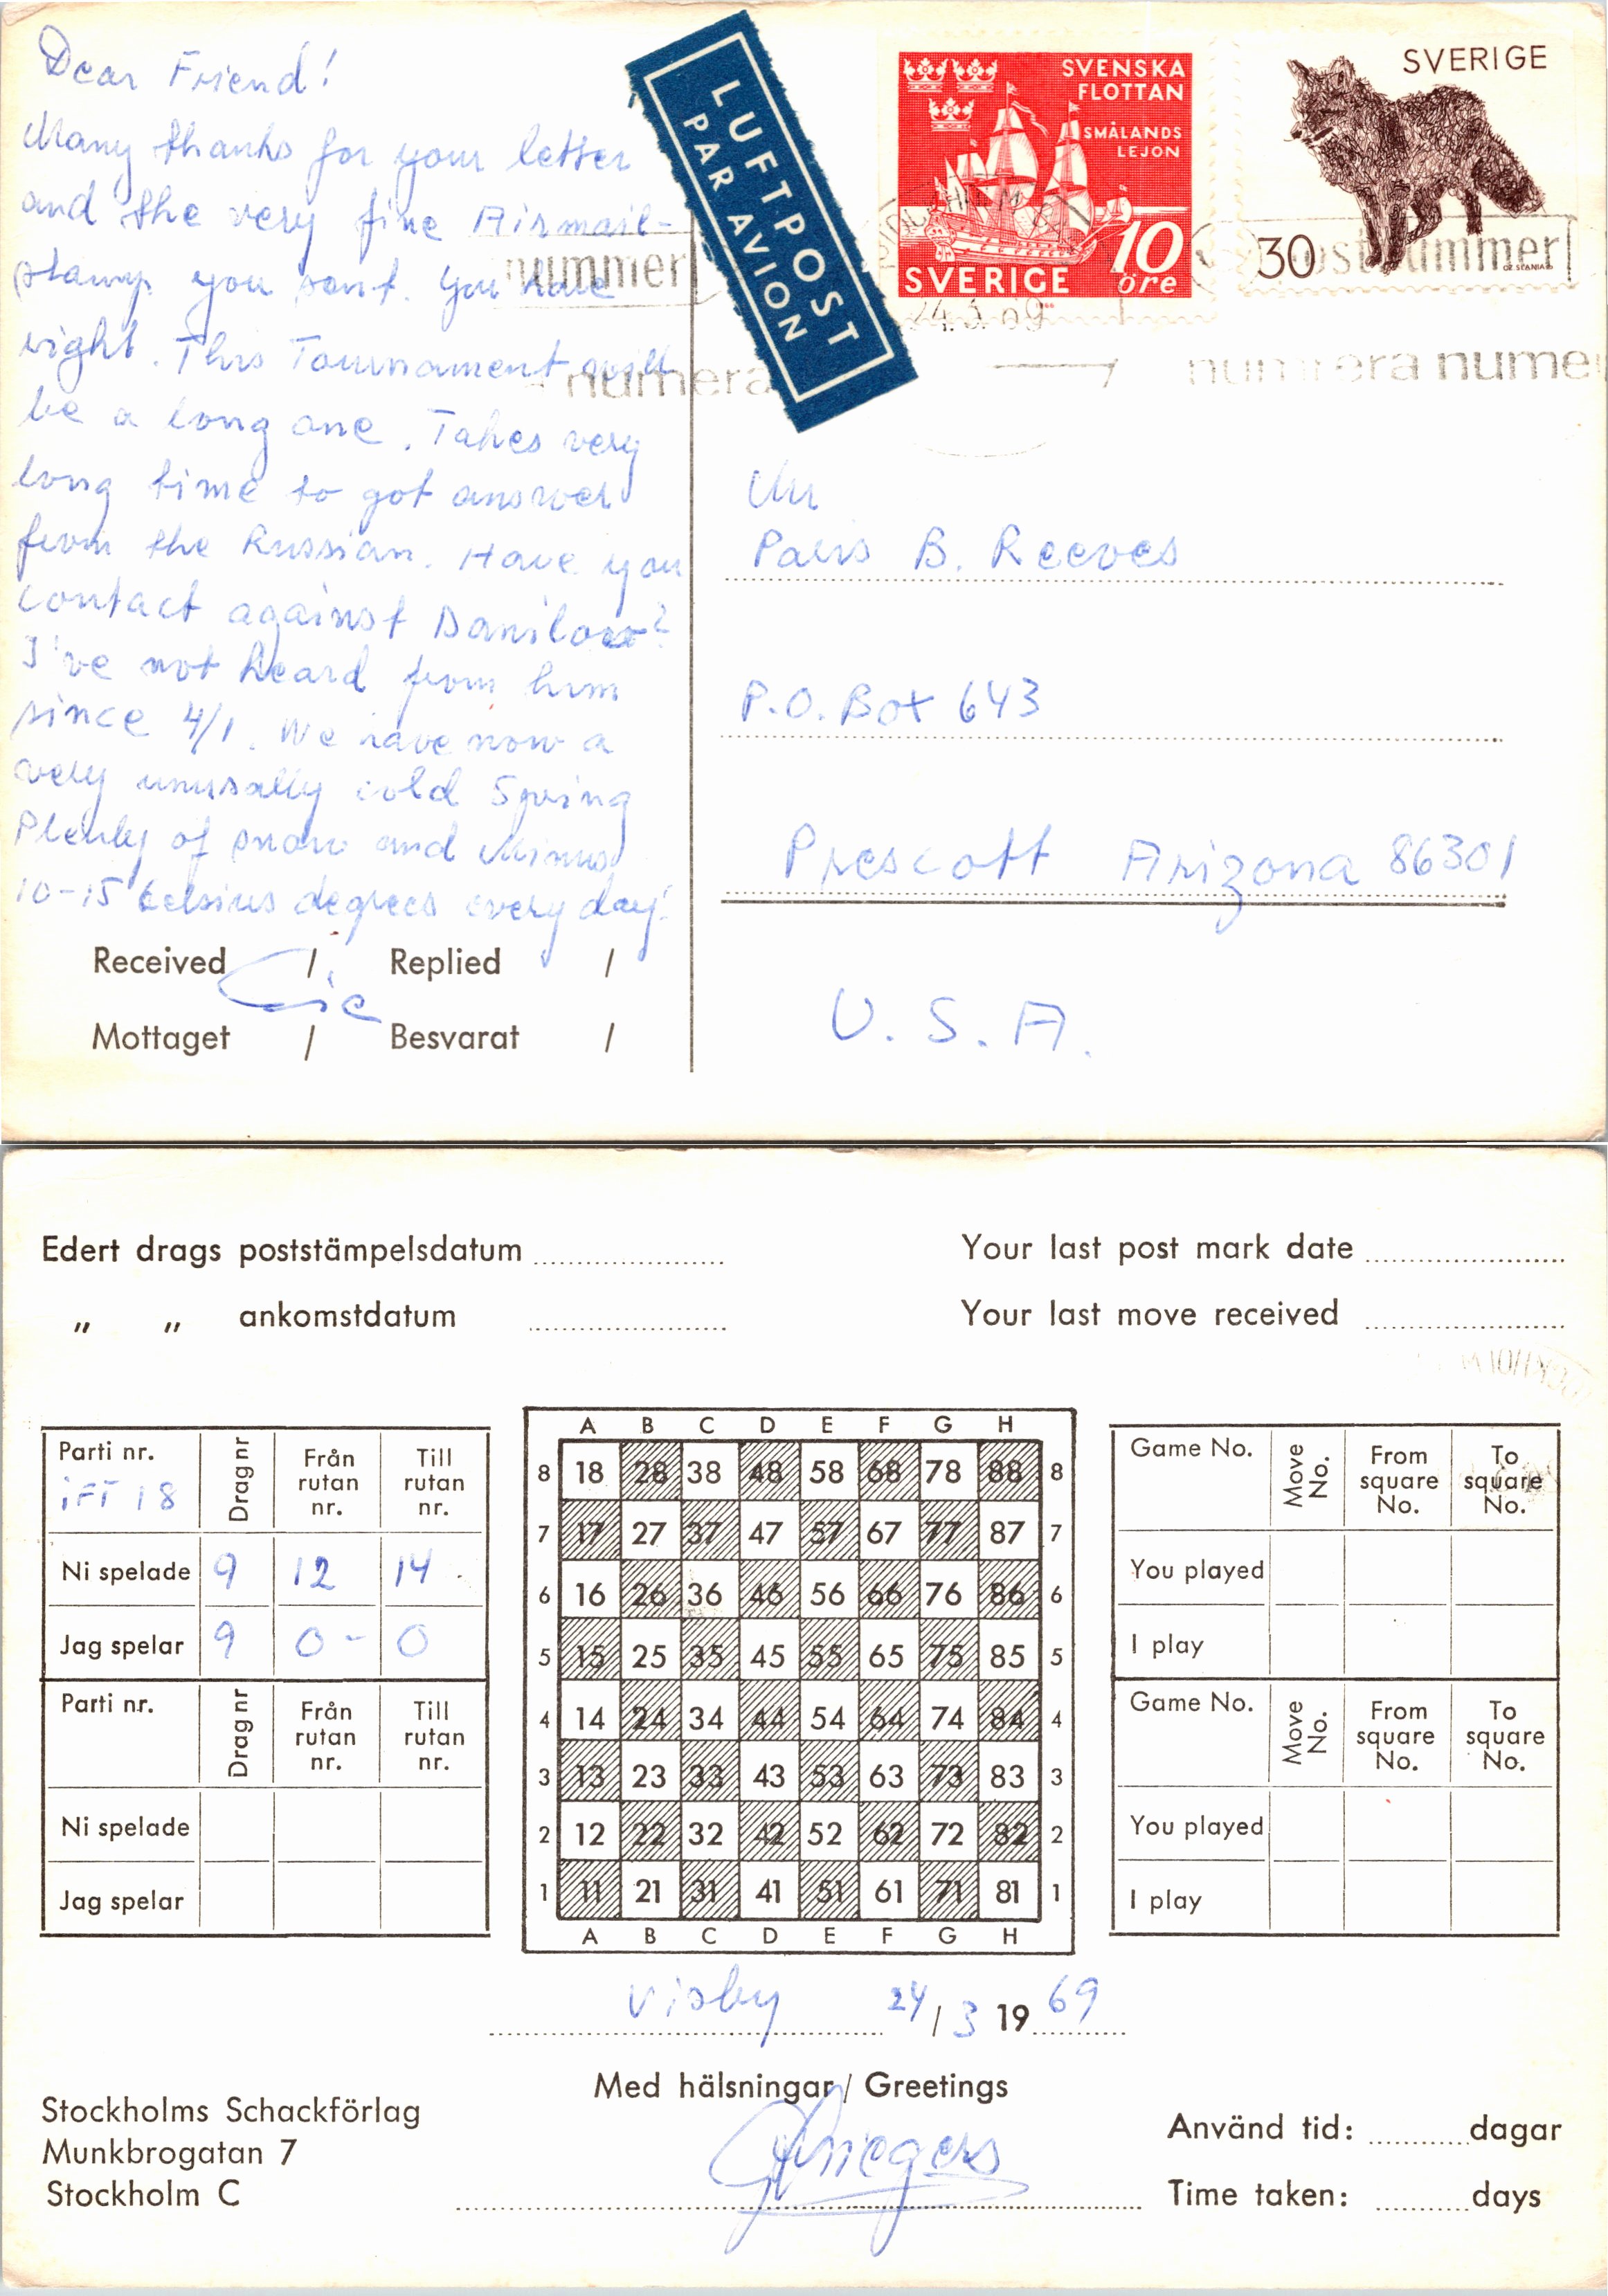 Dear Friend!
Many thanks for your letter
and the very fine Airmail-
stamp you sent. You have
right. This Tournament will
be a long one. Takes very
long time to got answer
from the Russian. Have you
contact against Danilow?
I've not heard from him
since 4/1. We have now a
very unusally cold Spring
Plenty of snow and Minus
10-15 Celsius degrees every day!
Received / Replied /
Mottaget / Besvarat /
LUFTPOST
PAR AVION
SVENSKA
FLOTTAN
SMÅLANDS
LEJON
10
SVERIGE öre
SVERIGE
30
nummer
postnummer
24.3.69
numera
numrera nume
Mr
Paris B. Reeves
P.O. Box 643
Prescott Arizona 86301
U.S.A.
Edert drags poststämpelsdatum
" " ankomstdatum
Your last post mark date
Your last move received
Parti nr. Drag nr Från rutan nr. Till rutan nr.
iFT 18
Ni spelade 9 12 14
Jag spelar 9 0 - 0
Parti nr. Drag nr Från rutan nr. Till rutan nr.
Ni spelade
Jag spelar
A B C D E F G H
8 18 28 38 48 58 68 78 88 8
7 17 27 37 47 57 67 77 87 7
6 16 26 36 46 56 66 76 86 6
5 15 25 35 45 55 65 75 85 5
4 14 24 34 44 54 64 74 84 4
3 13 23 33 43 53 63 73 83 3
2 12 22 32 42 52 62 72 82 2
1 11 21 31 41 51 61 71 81 1
A B C D E F G H
Game No. Move No. From square No. To square No.
You played
I play
Game No. Move No. From square No. To square No.
You played
I play
Visby 24/3 1969
Med hälsningar / Greetings
Stockholms Schackförlag
Munkbrogatan 7
Stockholm C
Använd tid: dagar
Time taken: days